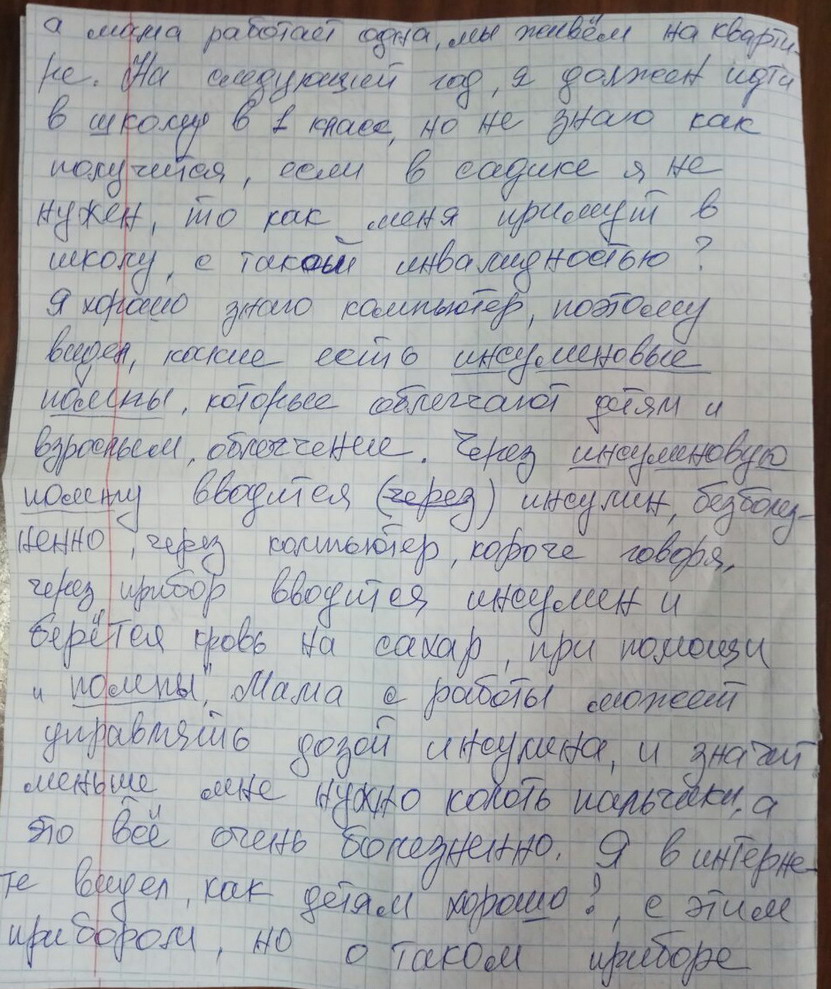 а мама работает одна, мы живём на кварти-
ре. На следующий год, я должен идти
в школу в 1 класс, но не знаю как
получится, если в садике я не
нужен, то как меня примут в
школу, с такой инвалидностью?
Я хорошо знаю компьютер, поэтому
видел, какие есть инсулиновые
помпы, которые облегчают детям и
взрослым, облегчение. Через инсулиновую
помпу вводится (через) инсулин, безболез-
ненно, через компьютер, короче говоря,
через прибор вводится инсулин и
берётся кровь на сахар, при помощи
"помпы", Мама с работы может
управлять дозой инсулина, и значит
меньше мне нужно колоть пальчики, а
это всё очень болезненно. Я в интерне-
те видел, как детям хорошо?, с этим
прибором, но о таком приборе